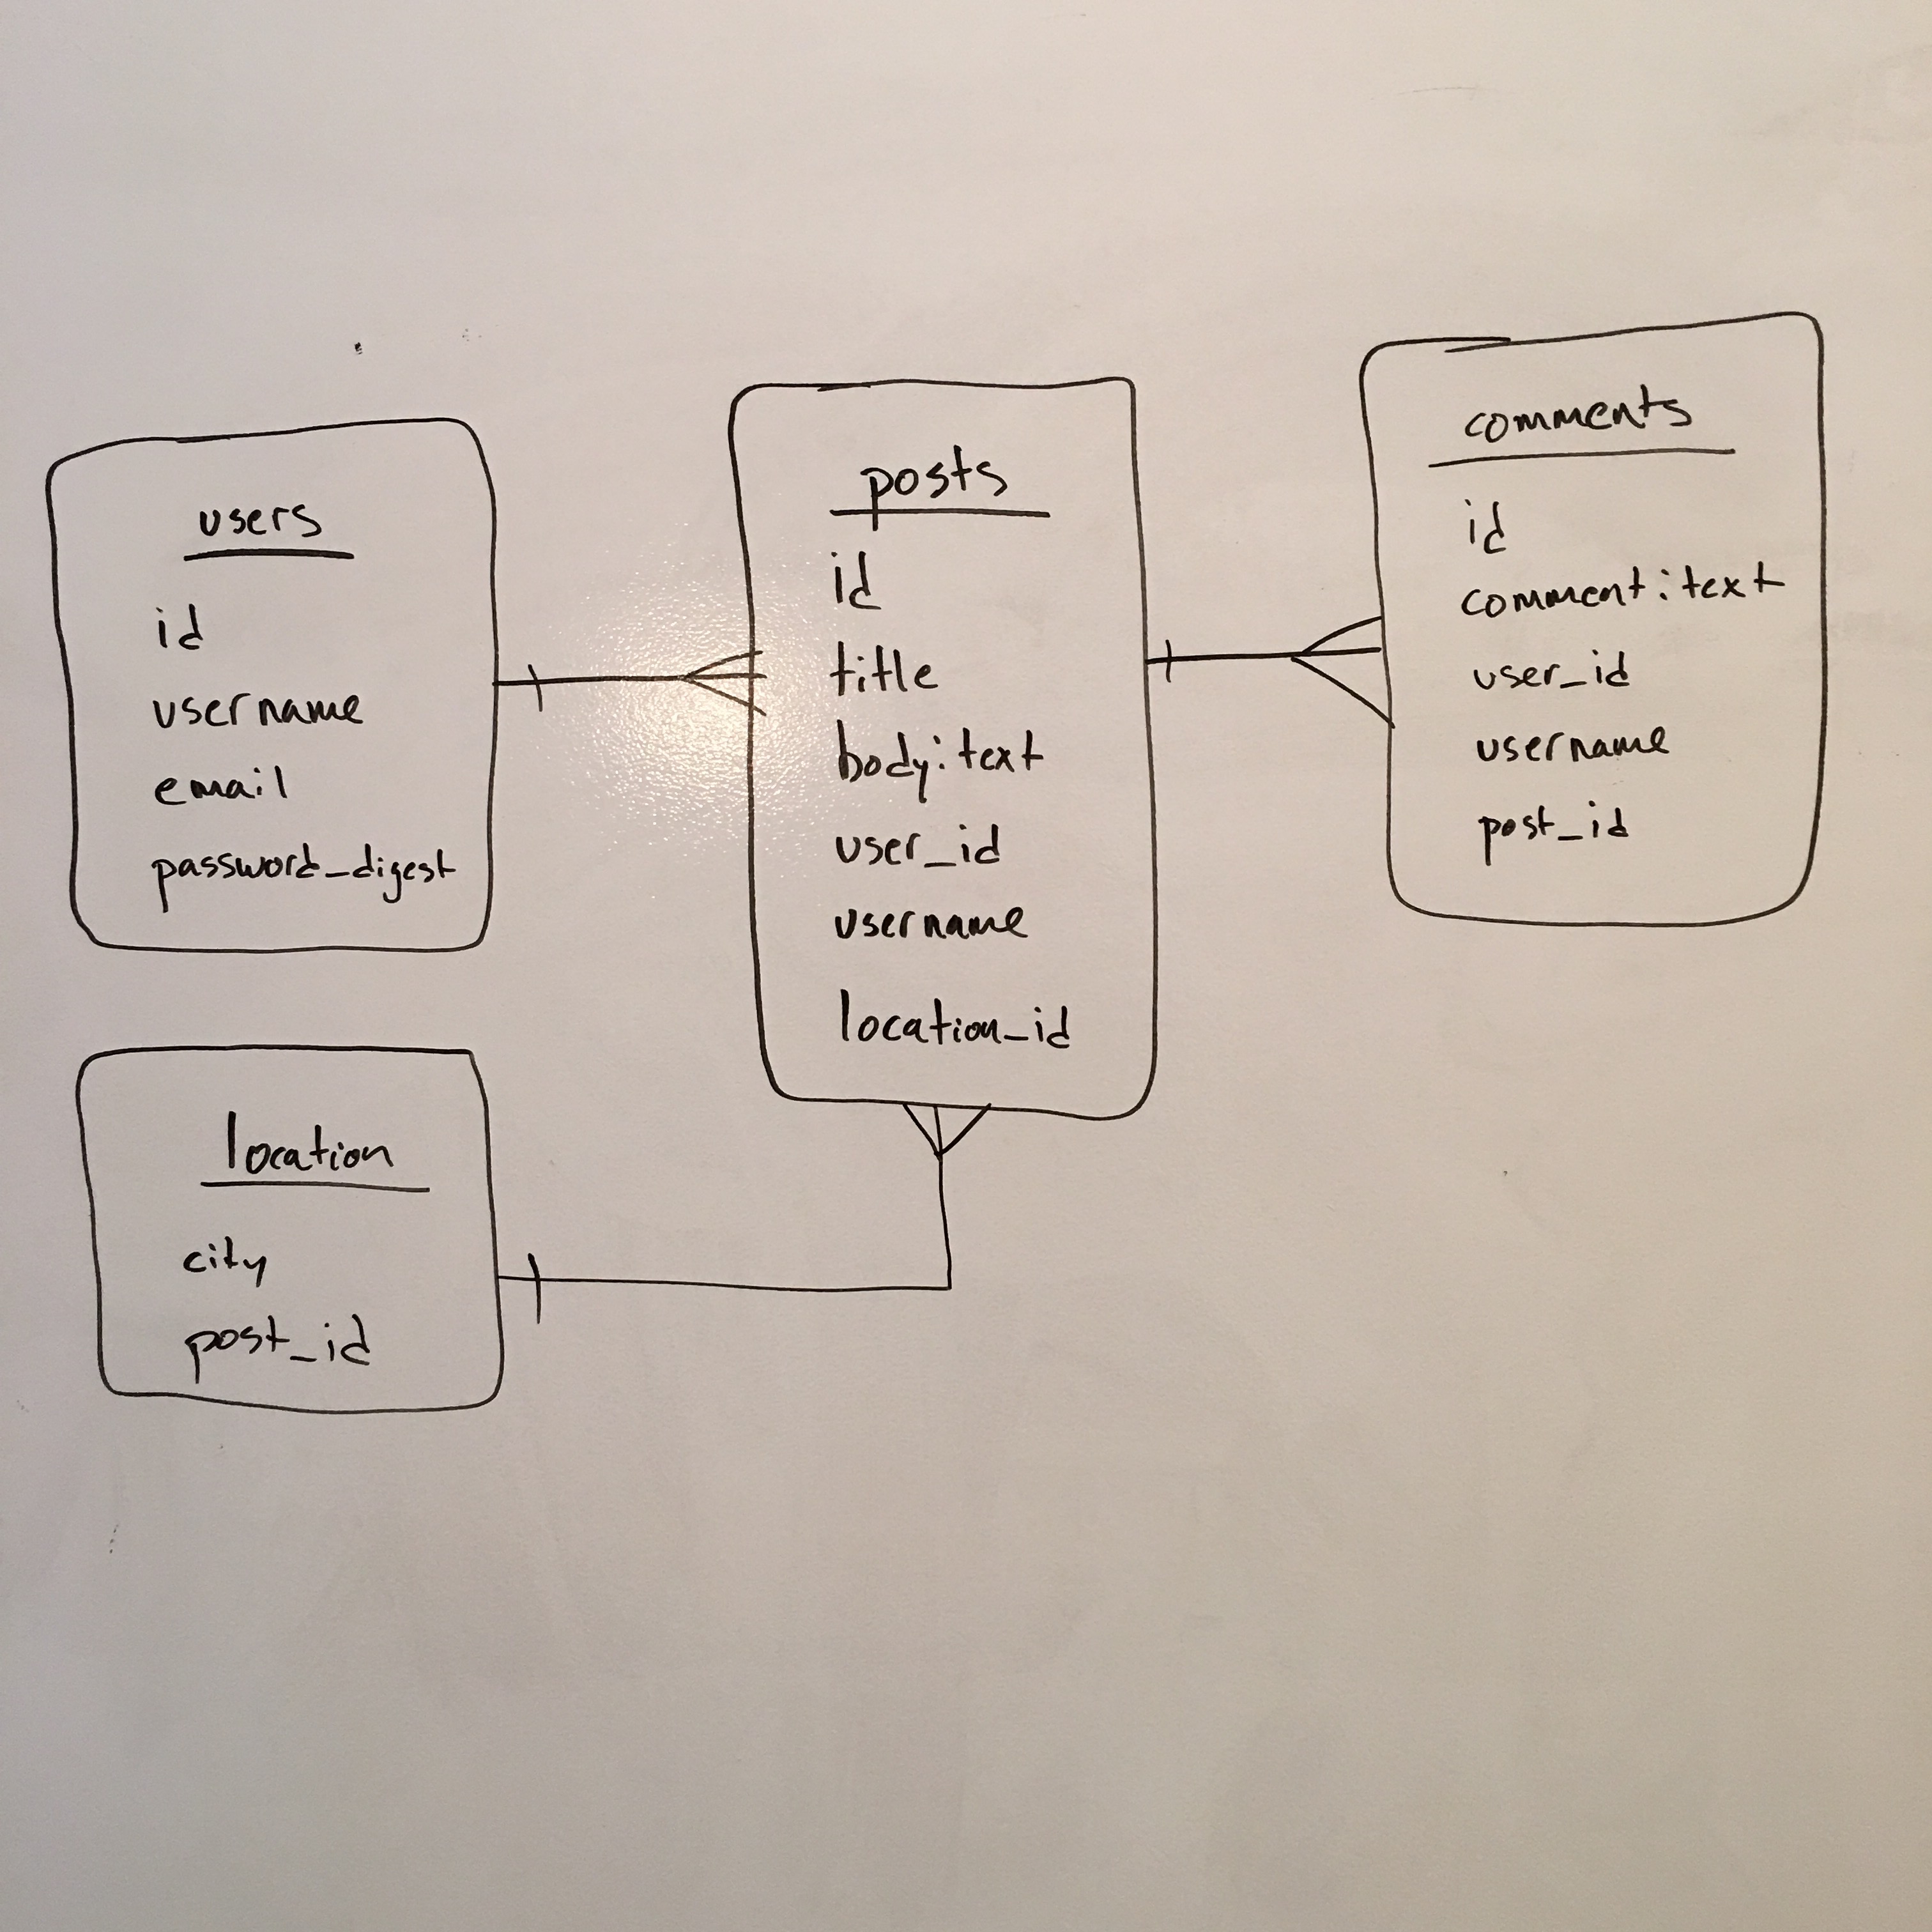 users
id
username
email
password_digest
posts
id
title
body:text
user_id
username
location_id
comments
id
comment:text
user_id
username
post_id
location
city
post_id